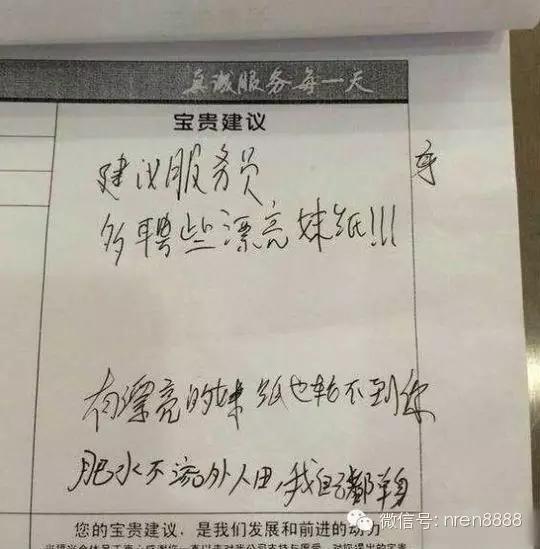 真诚服务每一天
宝贵建议
建议服务员
多聘些漂亮妹纸!!!
有漂亮的妹纸也轮不到你
肥水不流外人田,我自己都单身
您的宝贵建议,是我们发展和前进的动力
微信号: nren8888